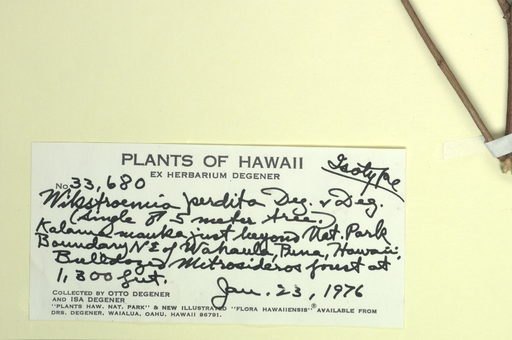 PLANTS OF HAWAII
Isotype
EX HERBARIUM DEGENER
No. 33,680
Wikstroemia perdita Deg. & Deg.
(single ♂ 5 meter tree.)
Kalani mauka just beyond Nat. Park
Boundary NE of Wahaula, Puna, Hawaii.
Bulldozed Metrosideros forest at
1,300 feet.
Jan. 23, 1976
COLLECTED BY OTTO DEGENER
AND ISA DEGENER
"PLANTS HAW. NAT. PARK" & NEW ILLUSTRATED "FLORA HAWAIIENSIS" AVAILABLE FROM
DRS. DEGENER, WAIALUA, OAHU, HAWAII 96791.